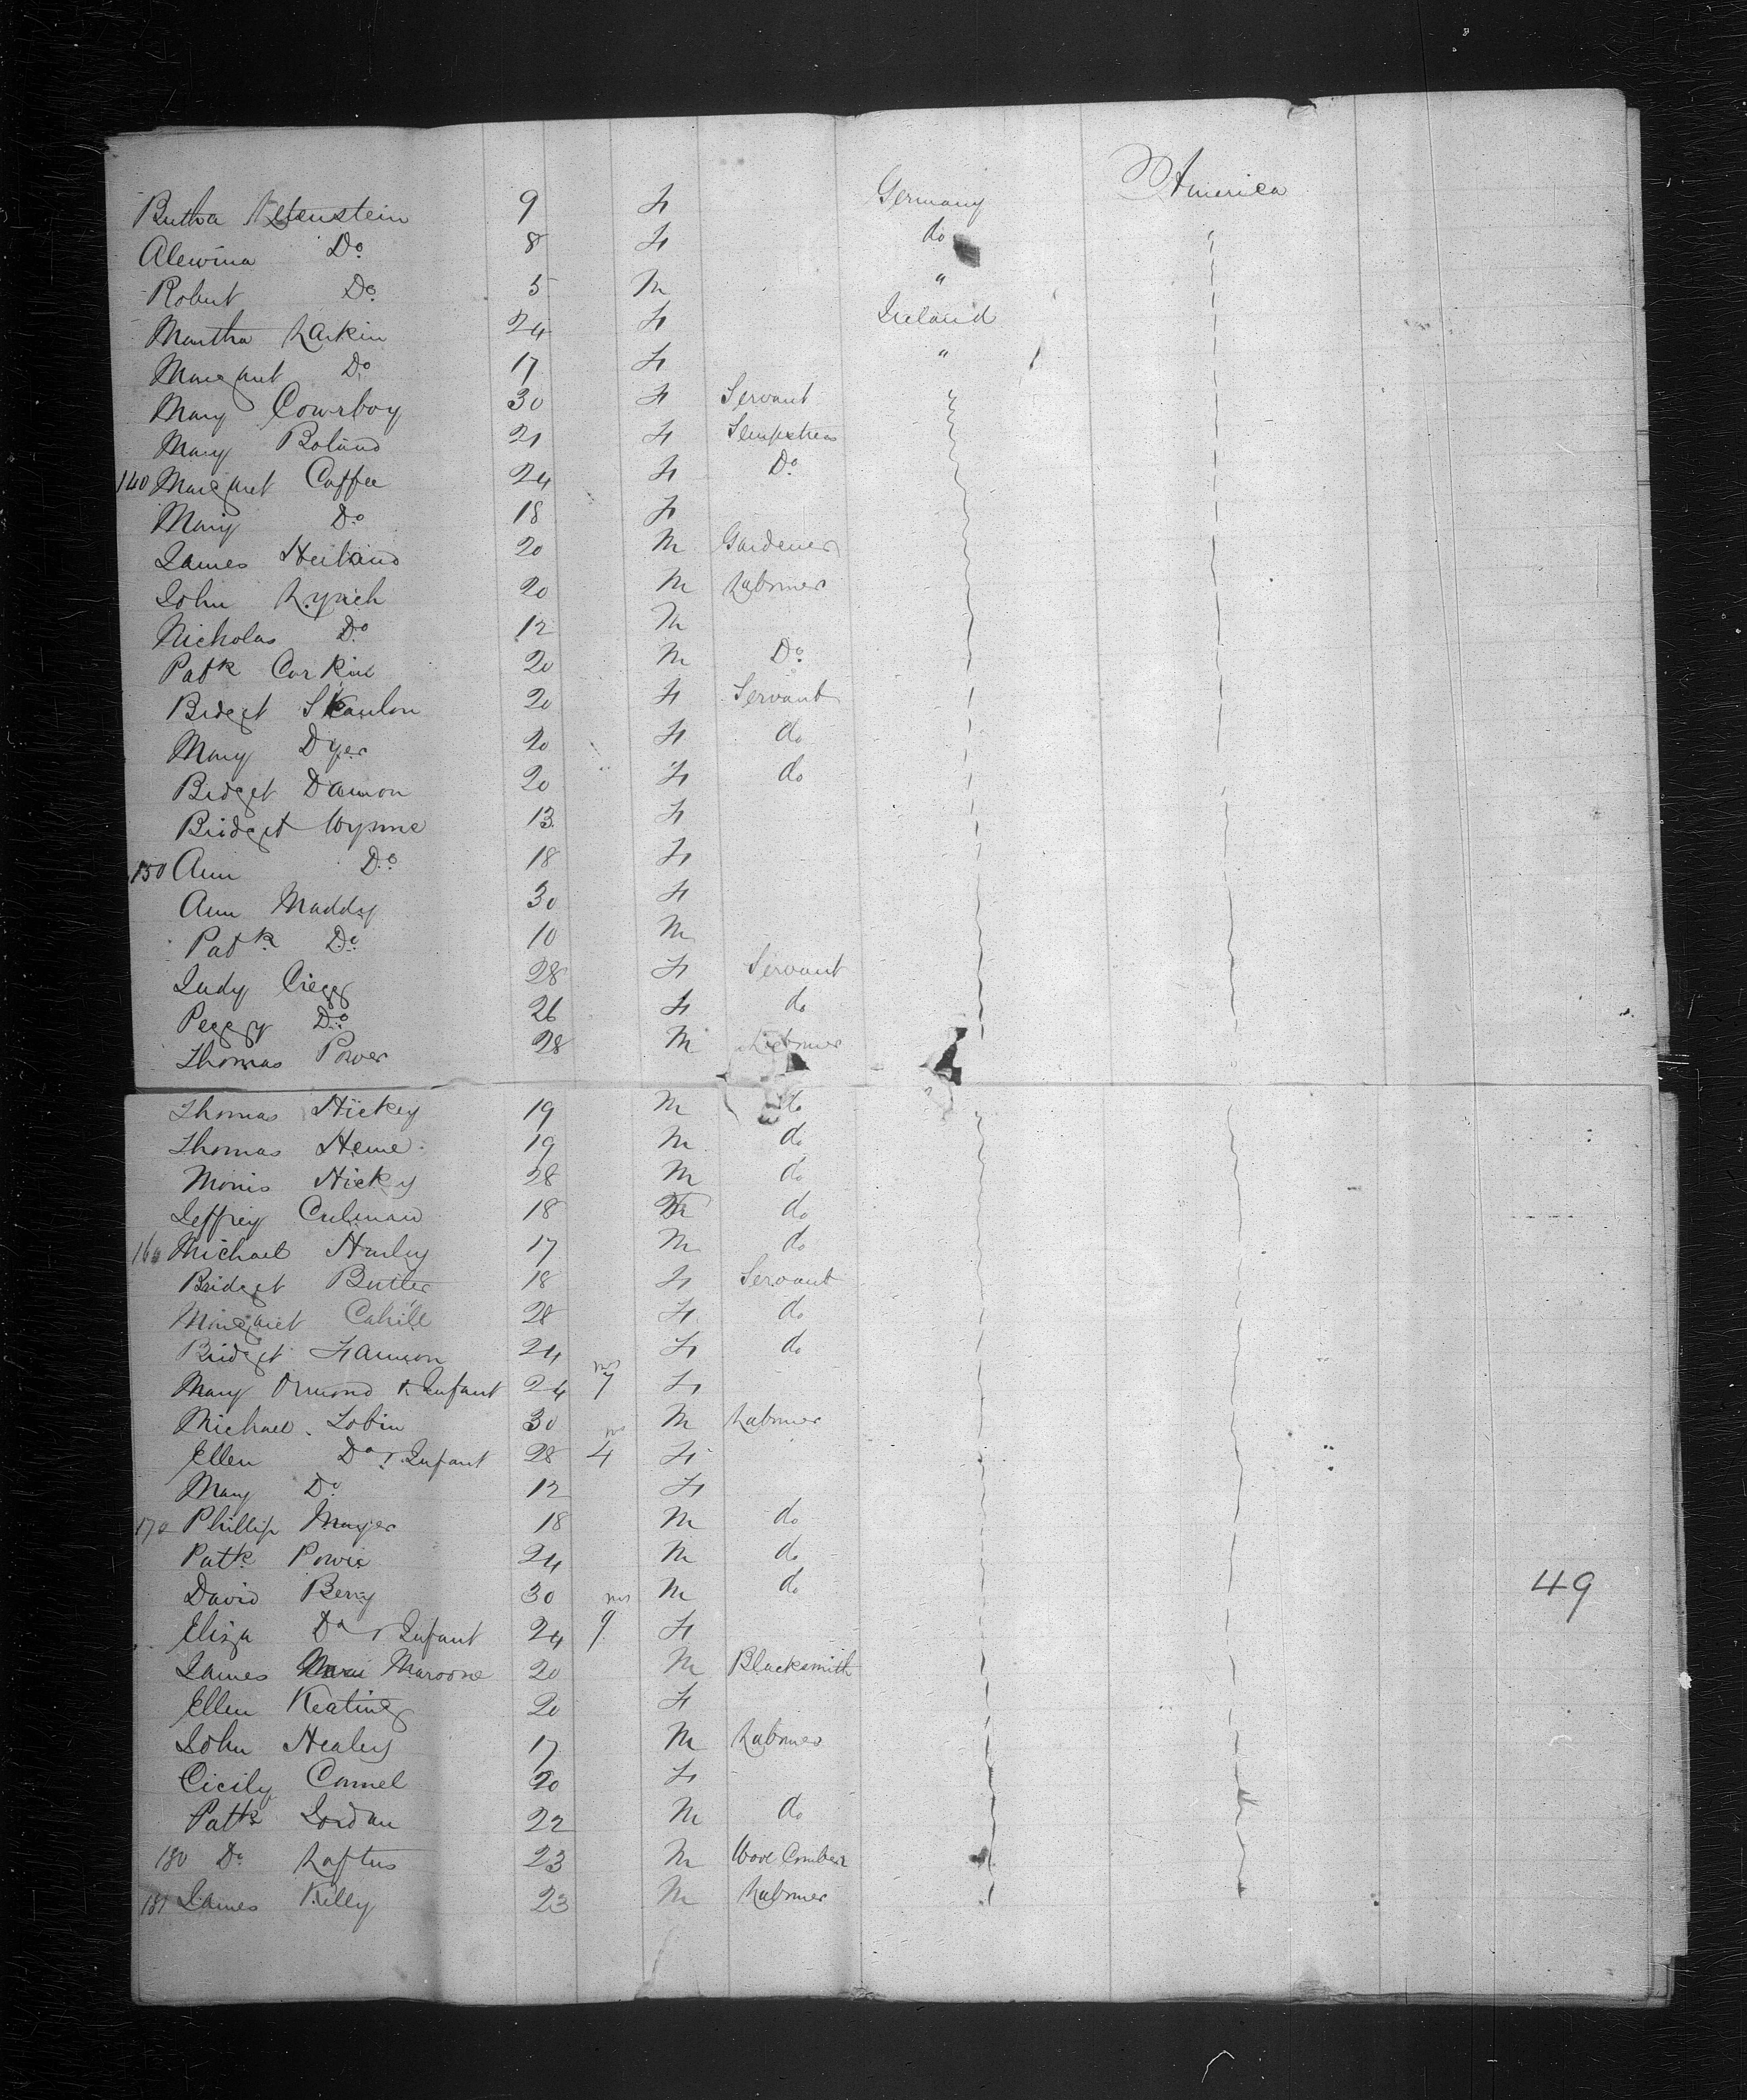 Butha 9 F Germany America
Alewina Do 8 F do "
Robert Do 5 M "
Martha Larkin 24 F Ireland
Margaret Do 17 F "
Mary Cowrboy 30 F Servant
Mary Boland 21 F Sempstress
140 Margaret Caffee 24 F Do
Mary Do 18 F
James 20 M Gardener
John Lynch 20 M Labourer
Nicholas Do 12 M
Patk Carkin 20 M Do
Bridget Skanlon 20 F Servant
Mary Dyer 20 F do
Bridget Damon 20 F do
Bridget Wynne 13 F
150 Ann Do 18 F
Ann Maddy 30 F
Patk Do 10 M
Judy Cregg 28 F Servant
Peggy Do 26 F do
Thomas Power 28 M Labourer
Thomas Hickey 19 M do
Thomas Herne 19 M do
Morris Hickey 28 M do
Jeffrey 18 M do
160 Michael Hurley 17 M do
Bridget Butler 18 F Servant
Margaret Cahill 28 F do
Bridget Hannon 24 F do
Mary Ormond & Infant 24 7 ms F
Michael Tobin 30 M Labourer
Ellen Do & Infant 28 4 ms F
Mary Do 12 F
170 Phillip 18 M do
Patk Power 24 M do
David Berry 30 M do
Eliza Do & Infant 24 9 ms F
James Maroone 20 M Blacksmith
Ellen Keating 20 F
John Healey 17 M Labourer
Cicily Connel 20 F
Patk Jordan 22 M do
180 Do Loftus 23 M Wool Comber
181 James Killy 23 M Labourer
49